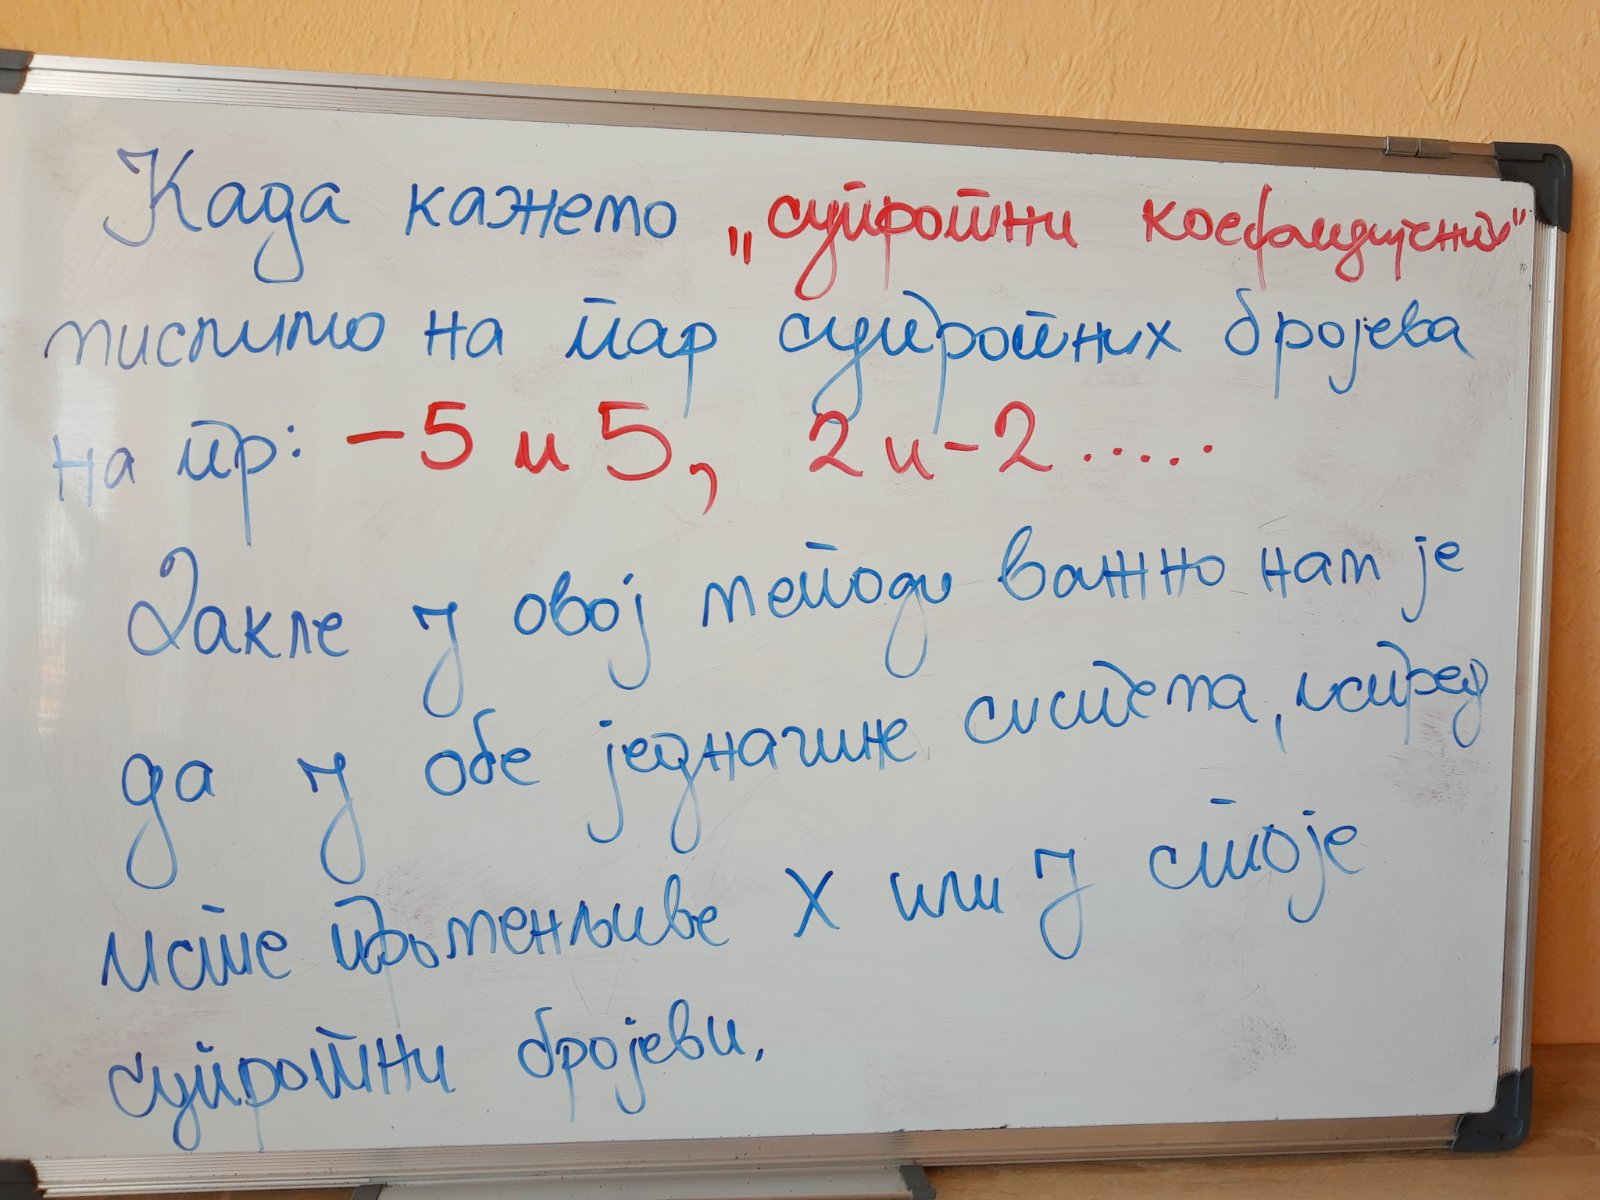 Када кажемо „супротни коефицијенти"
мислимо на пар супротних бројева
на пр: -5 и 5, 2 и -2.....
Дакле у овој методи важно нам је
да у обе једначине система, испред
исте промењљиве X или У стоје
супротни бројеви.